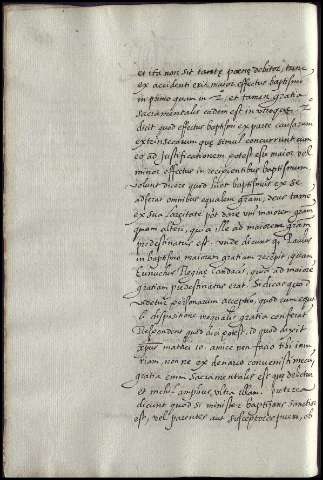 et ita non sit tantę poenę debitor, tunc
ex accidenti erit maior effectus baptismi
in primo quam in 2º, et tamen gratia
sacramentalis eadem est in utroque. 2º
dicit quod effectus baptismi ex parte causarum
extrinsecarum que simul concurrunt cum
eo ad justificationem potest esse maior vel
minor effectus in recipientibus baptismum,
volunt dicere quod licet baptismus ex se
adferat omnibus equalem gram, deus tamen
ex sua largitate pot dare uni maiorem gram
quam alteri, quia ille ad maiorem gram
predestinatus est. unde dicunt q Paulus
in baptismo maiorem gratiam recepit, quam
Eunuchus Reginę Candacis, quia ad maiorem
gratiam predestinatus erat. Si dicas quod
videtur personarum acceptio, quod cum equa
li dispositione inequalis gratia conferatur
Respondent quod dici potest, id quod dixit
xpus mathei 20. amice non facio tibi iniu
riam, nonne ex denario convenisti mecu,
gratia enim sacramentalis est que debetur
et nichil amplius ultra illam. preterea
dicunt quod si minister baptizans sanctus
est, vel parentes aut susceptores puerum, ob